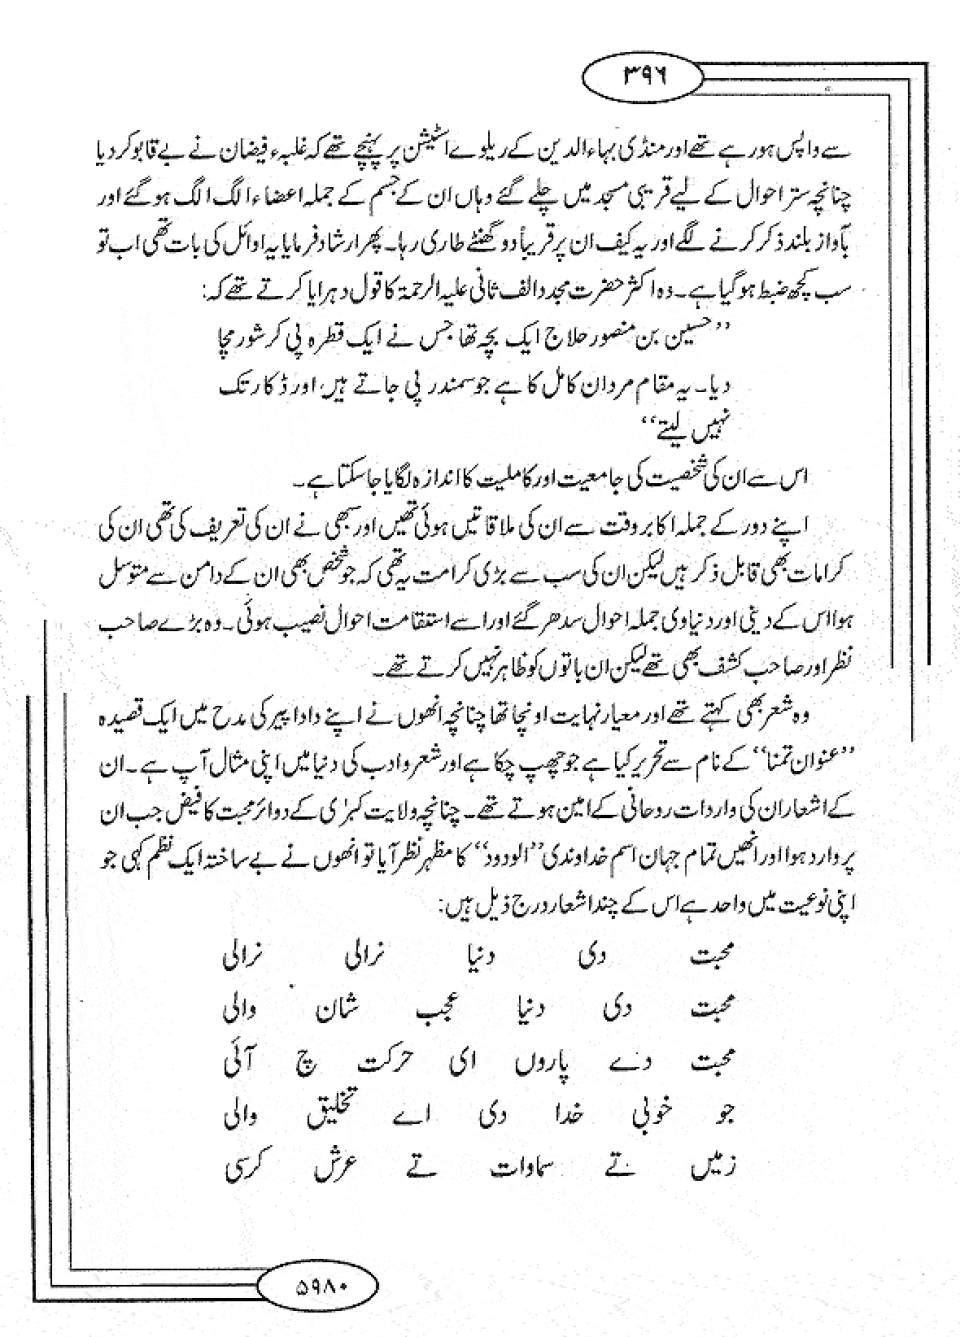 ۳۹۶
سے واپس ہورہے تھے اور منڈی بہاءالدین کے ریلوے اسٹیشن پر پہنچے تھے کہ غلبہء فیضان نے بے قابو کردیا
چنانچہ ستر احوال کے لیے قریبی مسجد میں چلے گئے وہاں ان کے جسم کے جملہ اعضاء الگ الگ ہوگئے اور
بآواز بلند ذکر کرنے لگے اور یہ کیف ان پر قریباً دو گھنٹے طاری رہا۔ پھر ارشاد فرمایا یہ اوائل کی بات تھی اب تو
سب کچھ ضبط ہوگیا ہے۔ وہ اکثر حضرت مجدد الف ثانی علیہ الرحمۃ کا قول دہرایا کرتے تھے کہ:
’’حسین بن منصور حلاج ایک بچہ تھا جس نے ایک قطرہ پی کر شور مچا
دیا۔ یہ مقام مردان کامل کا ہے جو سمندر پی جاتے ہیں اور ڈکار تک
نہیں لیتے‘‘
اس سے ان کی شخصیت کی جامعیت اور کاملیت کا اندازہ لگایا جاسکتا ہے۔
اپنے دور کے جملہ اکابر وقت سے ان کی ملاقاتیں ہوئی تھیں اور سبھی نے ان کی تعریف کی تھی ان کی
کرامات بھی قابل ذکر ہیں لیکن ان کی سب سے بڑی کرامت یہ تھی کہ جو شخص بھی ان کے دامن سے متوسل
ہوا اس کے دینی اور دنیاوی جملہ احوال سدھر گئے اور اسے استقامت احوال نصیب ہوئی۔ وہ بڑے صاحب
نظر اور صاحب کشف بھی تھے لیکن ان باتوں کو ظاہر نہیں کرتے تھے۔
وہ شعر بھی کہتے تھے اور معیار نہایت اونچا تھا چنانچہ انھوں نے اپنے دادا پیر کی مدح میں ایک قصیدہ
’’عنوان تمنا‘‘ کے نام سے تحریر کیا ہے جو چھپ چکا ہے اور شعر و ادب کی دنیا میں اپنی مثال آپ ہے۔ ان
کے اشعار ان کی واردات روحانی کے امین ہوتے تھے۔ چنانچہ ولایت کبرٰی کے دوائر محبت کا فیض جب ان
پر وارد ہوا اور انھیں تمام جہان اسم خداوندی ’’الودود‘‘ کا مظہر نظر آیا تو انھوں نے بے ساختہ ایک نظم کہی جو
اپنی نوعیت میں واحد ہے اس کے چند اشعار درج ذیل ہیں:
محبت دی دنیا نرالی نرالی
محبت دی دنیا عجب شان والی
محبت دے پاروں ای حرکت چ آئی
جو خوبی خدا دی اے تخلیق والی
زمیں تے سماوات تے عرش کرسی
۵۹۸۰